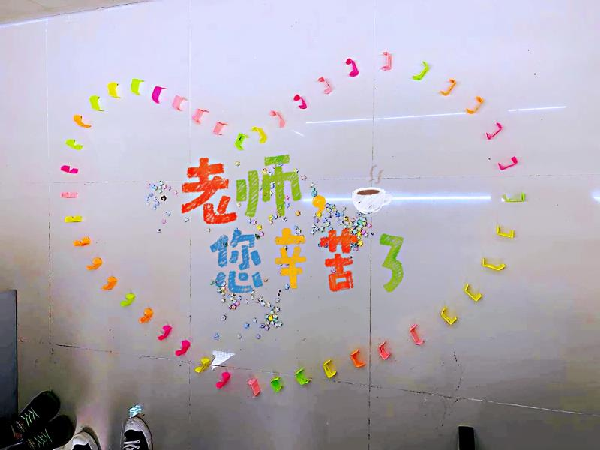 老师，
您辛苦了